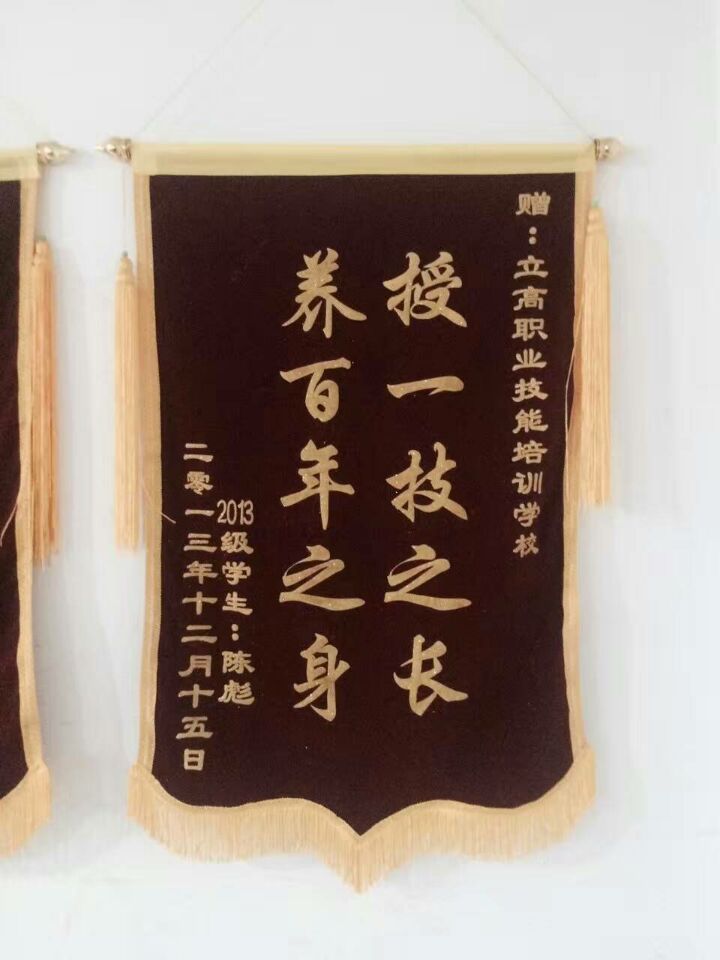 赠：立高职业技能培训学校
授一技之长
养百年之身
2013级学生：陈彪
二零一三年十二月十五日